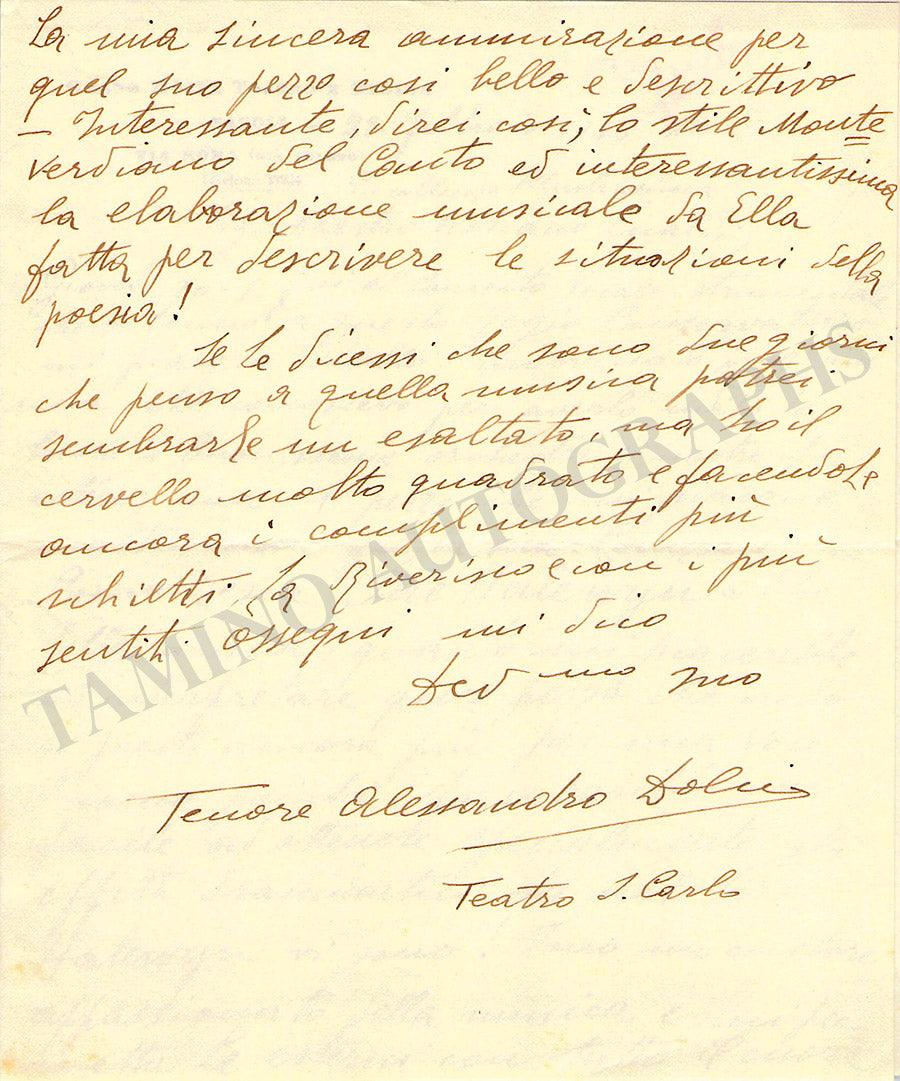 La mia sincera ammirazione per
quel suo pezzo così bello e descrittivo
– Interessante, direi così, lo stile Monte=
verdiano del Canto ed interessantissima
la elaborazione musicale da Ella
fatta per descrivere le situazioni della
poesia!
Se Le dicessi che sono due giorni
che penso a quella musica potrei
sembrarLe un esaltato, ma ho il
cervello molto quadrato e facendoLe
ancora i complimenti più
schietti La riverisco e con i più
sentiti ossequi mi dico
Dev mo suo
Tenore Alessandro Dolci
Teatro S. Carlo
TAMINO AUTOGRAPHS